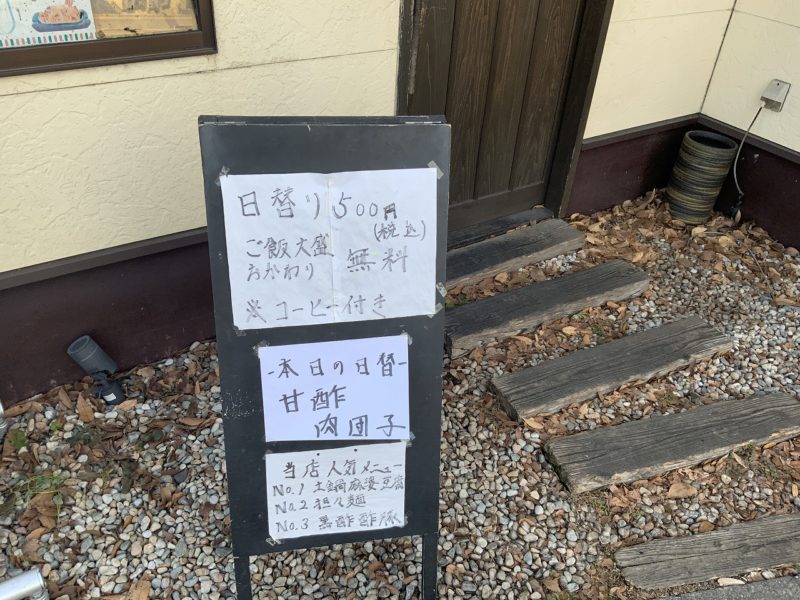 日替り 500円
(税込)
ご飯大盛
おかわり 無料
※コーヒー付き
-本日の日替-
甘酢
肉団子
当店人気メニュー
No.1 土鍋麻婆豆腐
No.2 担々麺
No.3 黒酢酢豚